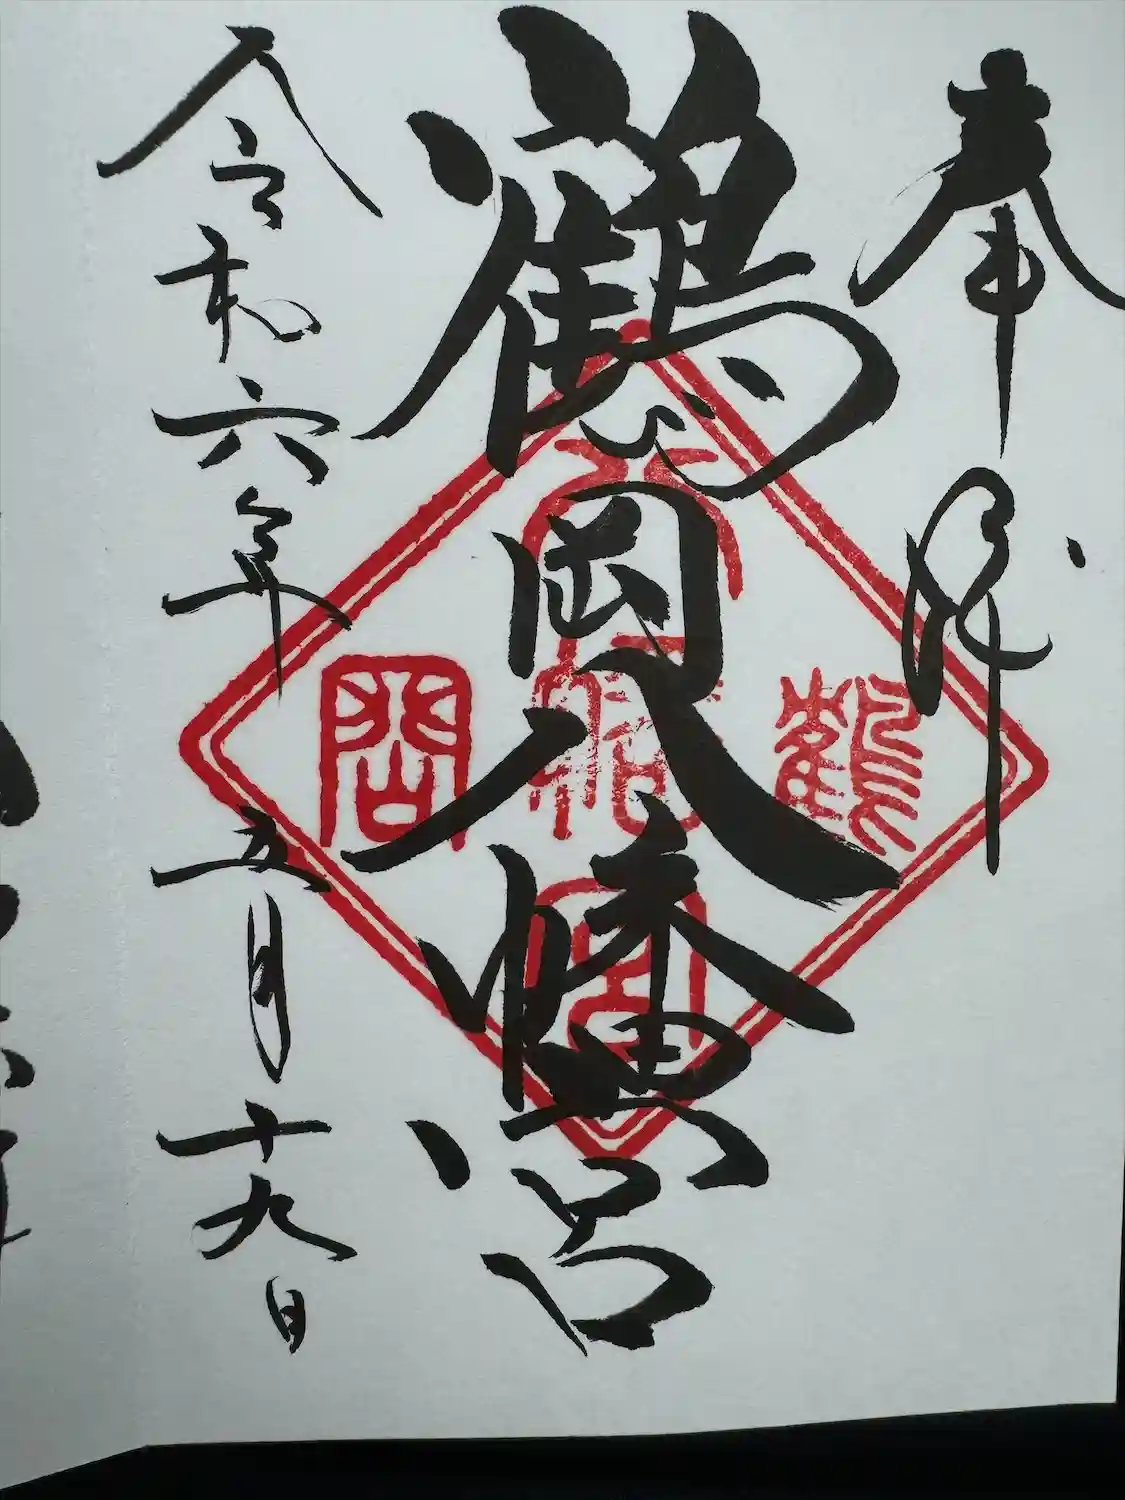 奉拝
鶴岡八幡宮
令和六年五月十九日
鶴
岡